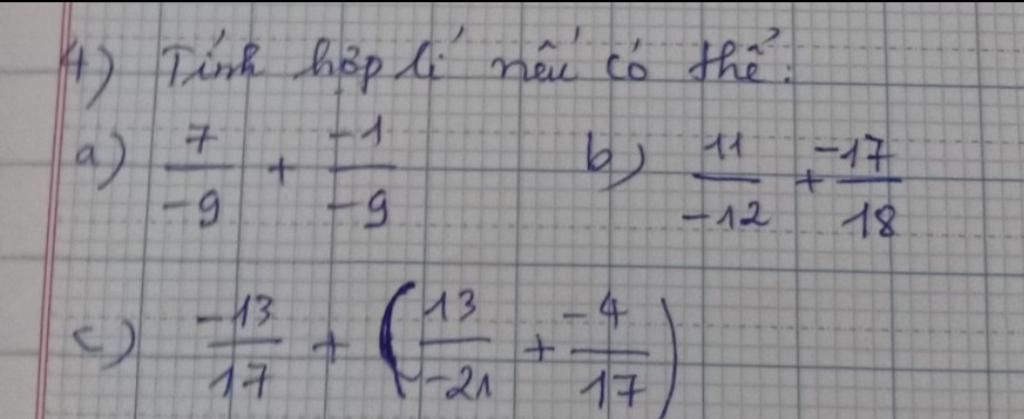 4) Tính hợp lí nếu có thể:
a) 7/-9 + -1/-9 b) 11/-12 + -17/18
c) -13/17 + (13/-21 + -4/17)